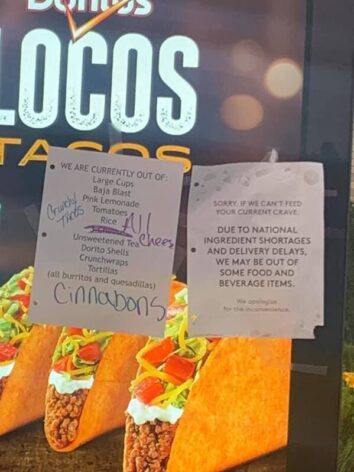 Doritos
LOCOS
TACOS
WE ARE CURRENTLY OUT OF:
Large Cups
Baja Blast
Pink Lemonade
Tomatoes
Rice
Unsweetened Tea
Dorito Shells
Crunchwraps
Tortillas
(all burritos and quesadillas)
Cinnabons
Crunchy
Tacos
All
Chees
SORRY, IF WE CAN'T FEED
YOUR CURRENT CRAVE.
DUE TO NATIONAL
INGREDIENT SHORTAGES
AND DELIVERY DELAYS,
WE MAY BE OUT OF
SOME FOOD AND
BEVERAGE ITEMS.
We apologize
for the inconvenience.